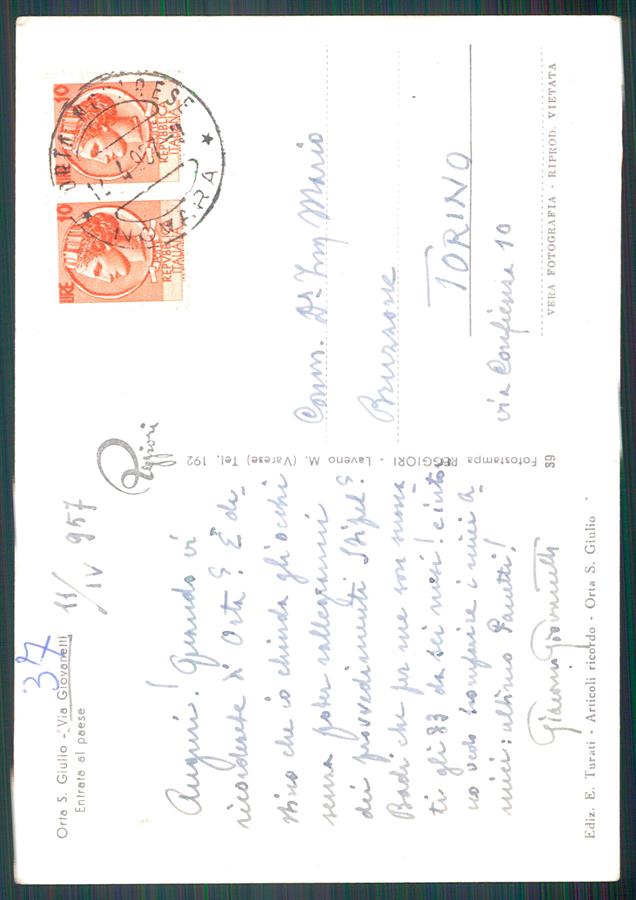 Orta S. Giulio - Via Giovanelli
Entrata al paese
37
11/IV 957
Auguri! Quando vi
ricorderete d'Orta? È de-
stino che io chiuda gli occhi
senza poter rallegrarmi
dei provvedimenti
Badi che per me son suona-
ti gli 83 da sei mesi! e into-
no vedo i miei a-
mici: ultimo
Giacomo Giovanetti
Ediz. E. Turati - Articoli ricordo - Orta S. Giulio
Reggiori
Fotostampa REGGIORI - Laveno M. (Varese) Tel. 192
39
LIRE 10
POSTE
REPVBBLICA
ITALIANA
LIRE 10
POSTE
REPVBBLICA
ITALIANA
ORTA NOVARESE
NOVARA
Comm. Dr. Ing Mario
Bruzzone
TORINO
via Confienza 10
VERA FOTOGRAFIA - RIPROD. VIETATA